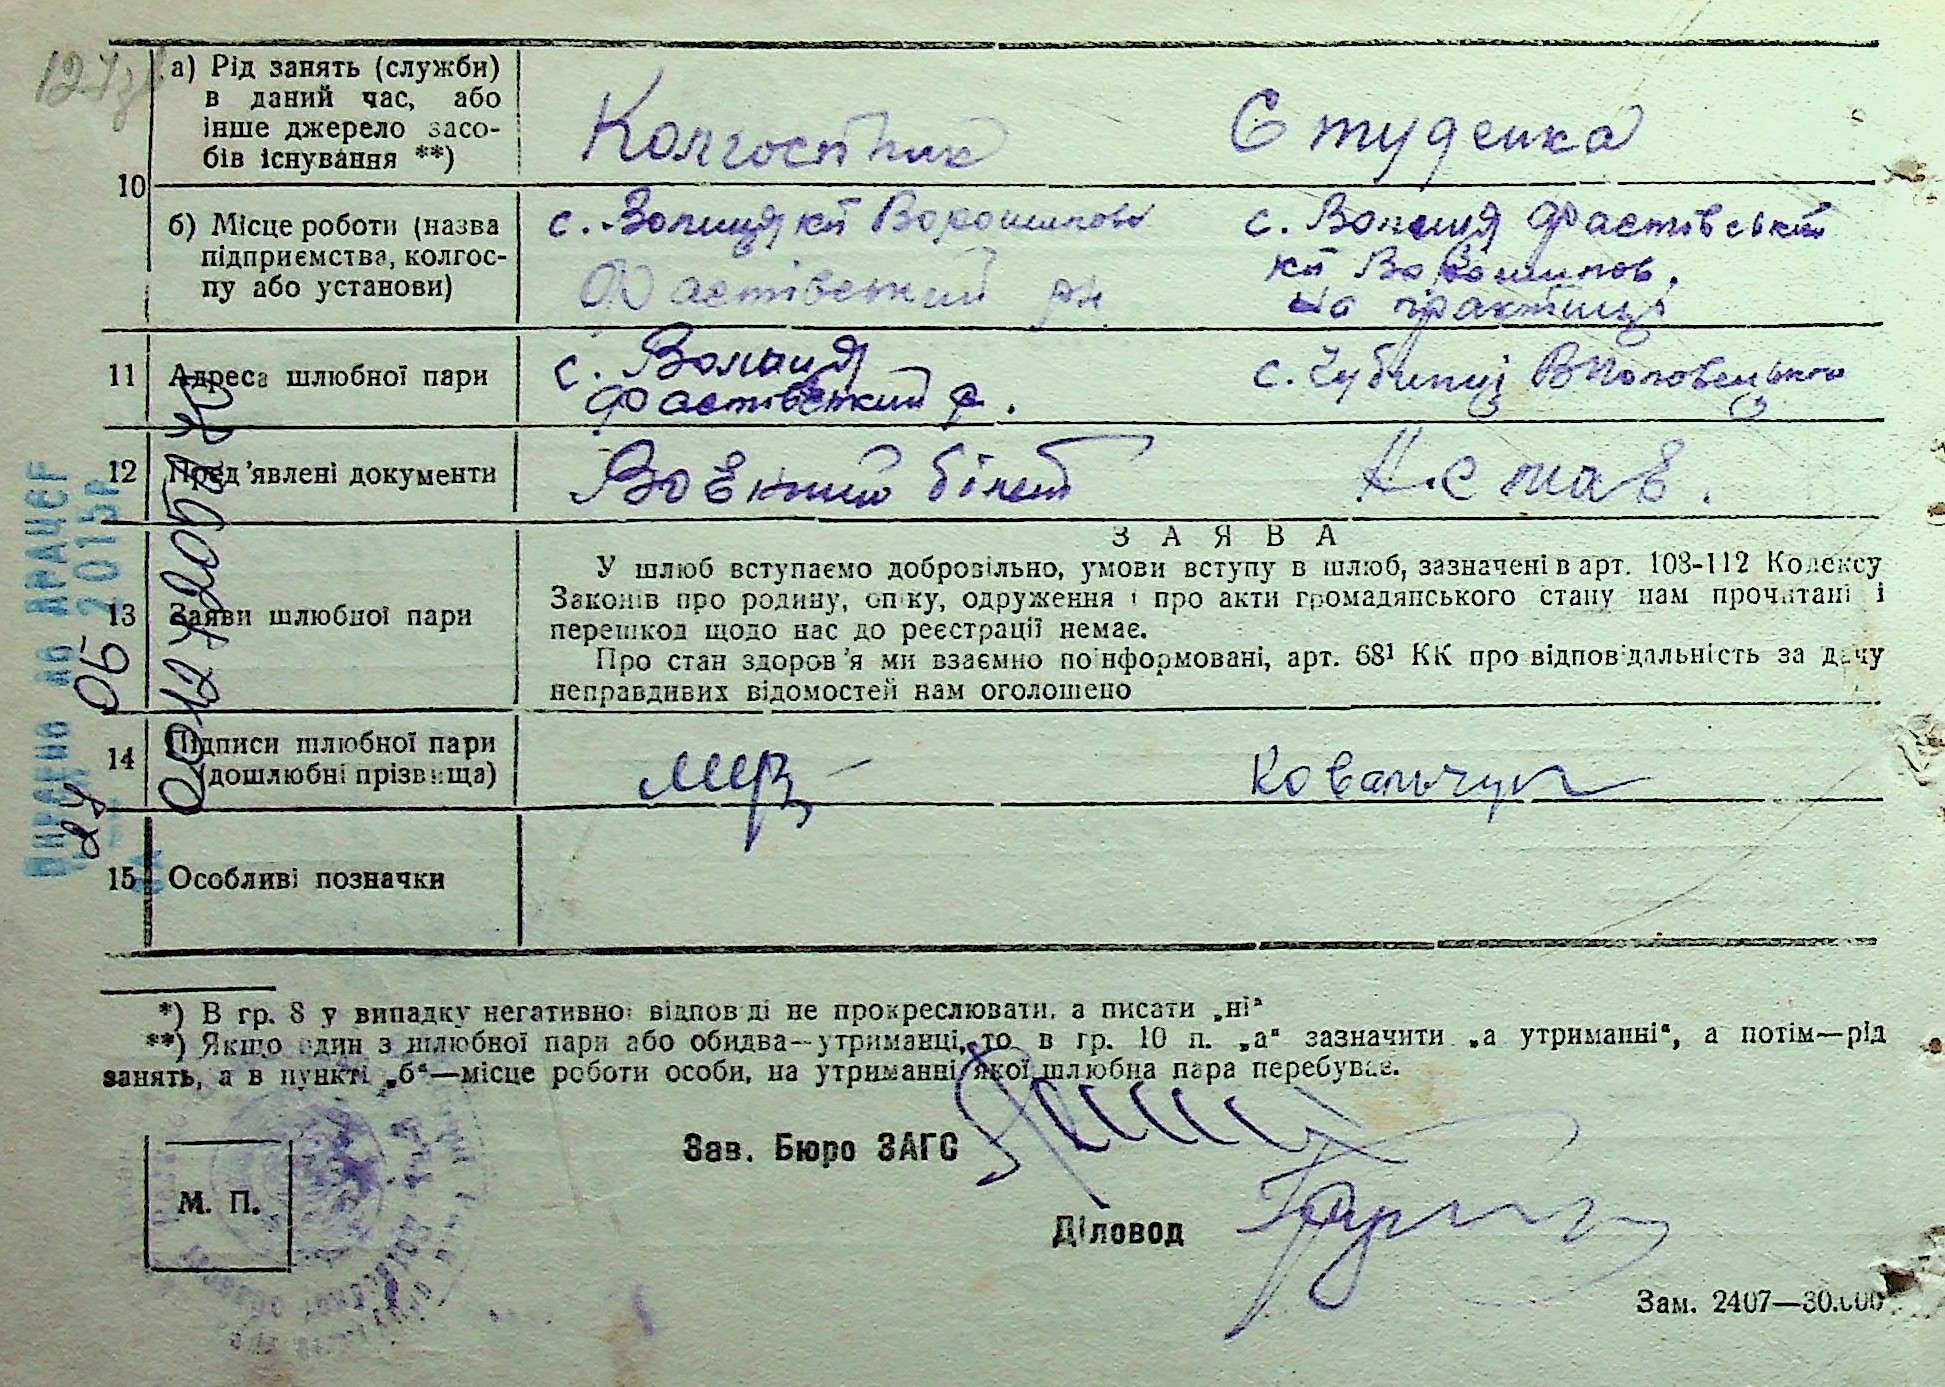 а) Рід занять (служби)
в даний час, або
інше джерело засо-
бів існування **)
Колгоспник
Студенка
10
б) Місце роботи (назва
підприємства, колгос-
пу або установи)
с. Волиця кп Ворошилова
Фастівський рн
с. Волиця Фастівський
кп Ворошилов.
на практиці
11
Адреса шлюбної пари
с. Волиця
Фастівский р.
с. Чубинці
12
Пред'явлені документи
Воєнний білет
Немає.
13
Заяви шлюбної пари
ЗАЯВА
У шлюб вступаємо добровільно, умови вступу в шлюб, зазначені в арт. 108-112 Кодексу
Законів про родину, опіку, одруження і про акти громадянського стану нам прочитані і
перешкод щодо нас до реєстрації немає.
Про стан здоров'я ми взаємно поінформовані, арт. 68¹ КК про відповідальність за дачу
неправдивих відомостей нам оголошено
14
Підписи шлюбної пари
(дошлюбні прізвища)
Ковальчук
15
Особливі позначки
*) В гр. 8 у випадку негативної відповіді не прокреслювати, а писати „ні“
**) Якщо один з шлюбної пари або обидва—утриманці, то в гр. 10 п. „а“ зазначити „а утриманні“, а потім—рід
занять, а в пункті „б“—місце роботи особи, на утриманні якої шлюбна пара перебуває.
Зав. Бюро ЗАГС
М. П.
Діловод
Зам. 2407—30.000
2015р